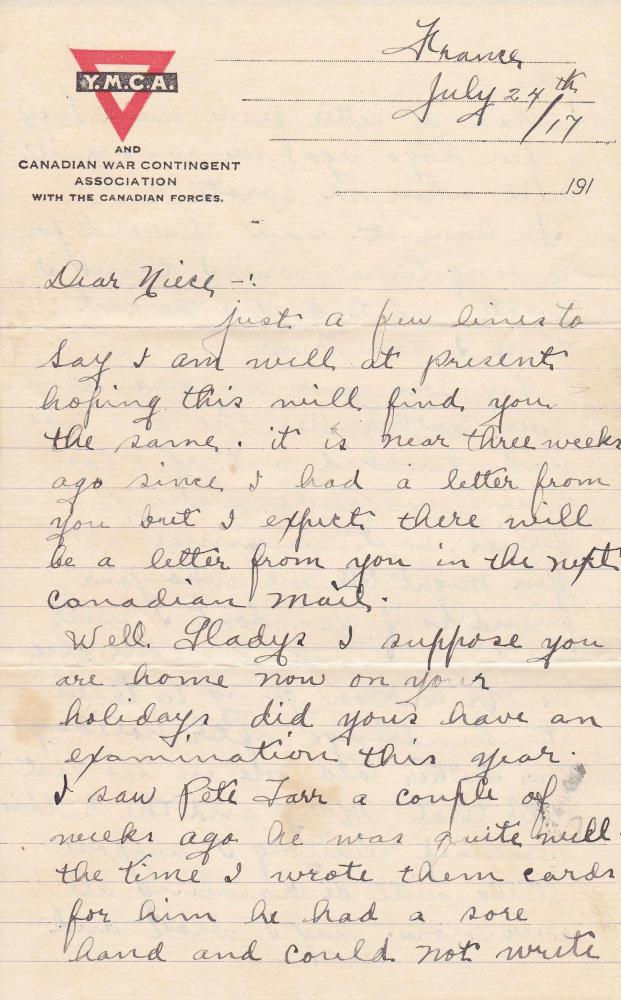 Y.M.C.A.
AND
CANADIAN WAR CONTINGENT
ASSOCIATION
WITH THE CANADIAN FORCES.
France
July 24th
/17
191
Dear Niece -:
just a few lines to
say I am well at present
hoping this will find you
the same. it is near three weeks
ago since I had a letter from
you but I expect there will
be a letter from you in the next
Canadian Mail.
Well. Gladys I suppose you
are home now on your
holidays did yours have an
examination this year.
I saw Pete Tarr a couple of
weeks ago he was quite well.
the time I wrote them cards
for him he had a sore
hand and could not write